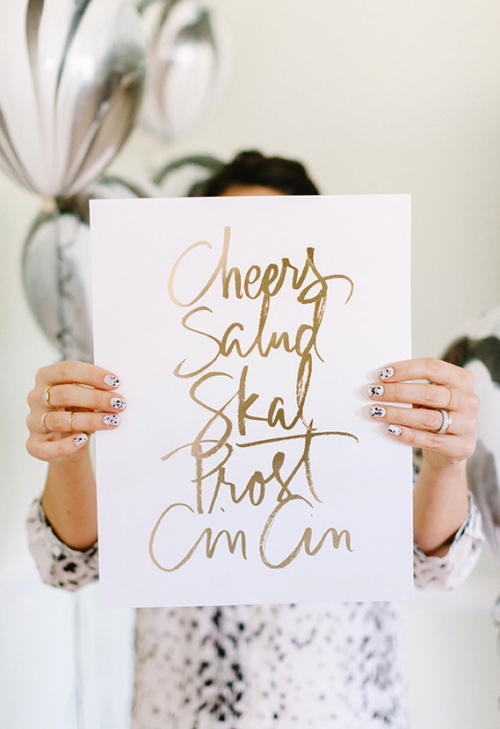 Cheers
Salud
Skal
Prost
Cin Cin